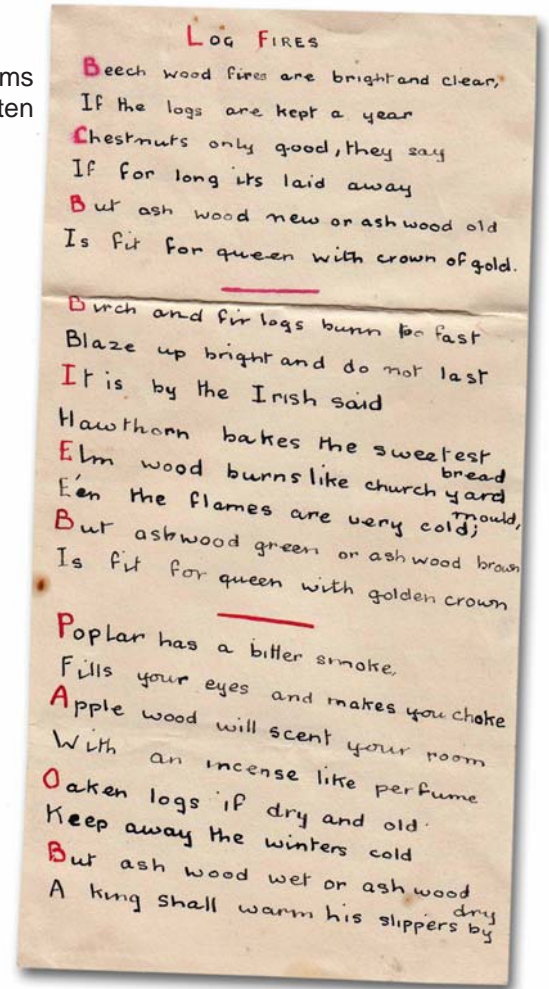 ms
ten
LOG FIRES
Beech wood fires are bright and clear,
If the logs are kept a year
Chestnuts only good, they say
If for long its laid away
But ash wood new or ash wood old
Is fit for queen with crown of gold.
Birch and fir logs burn too fast
Blaze up bright and do not last
It is by the Irish said
Hawthorn bakes the sweetest bread
Elm wood burns like church yard mould,
E'en the flames are very cold;
But ashwood green or ash wood brown
Is fit for queen with golden crown
Poplar has a bitter smoke,
Fills your eyes and makes you choke
Apple wood will scent your room
With an incense like perfume
Oaken logs if dry and old.
Keep away the winters cold
But ash wood wet or ash wood dry
A king shall warm his slippers by